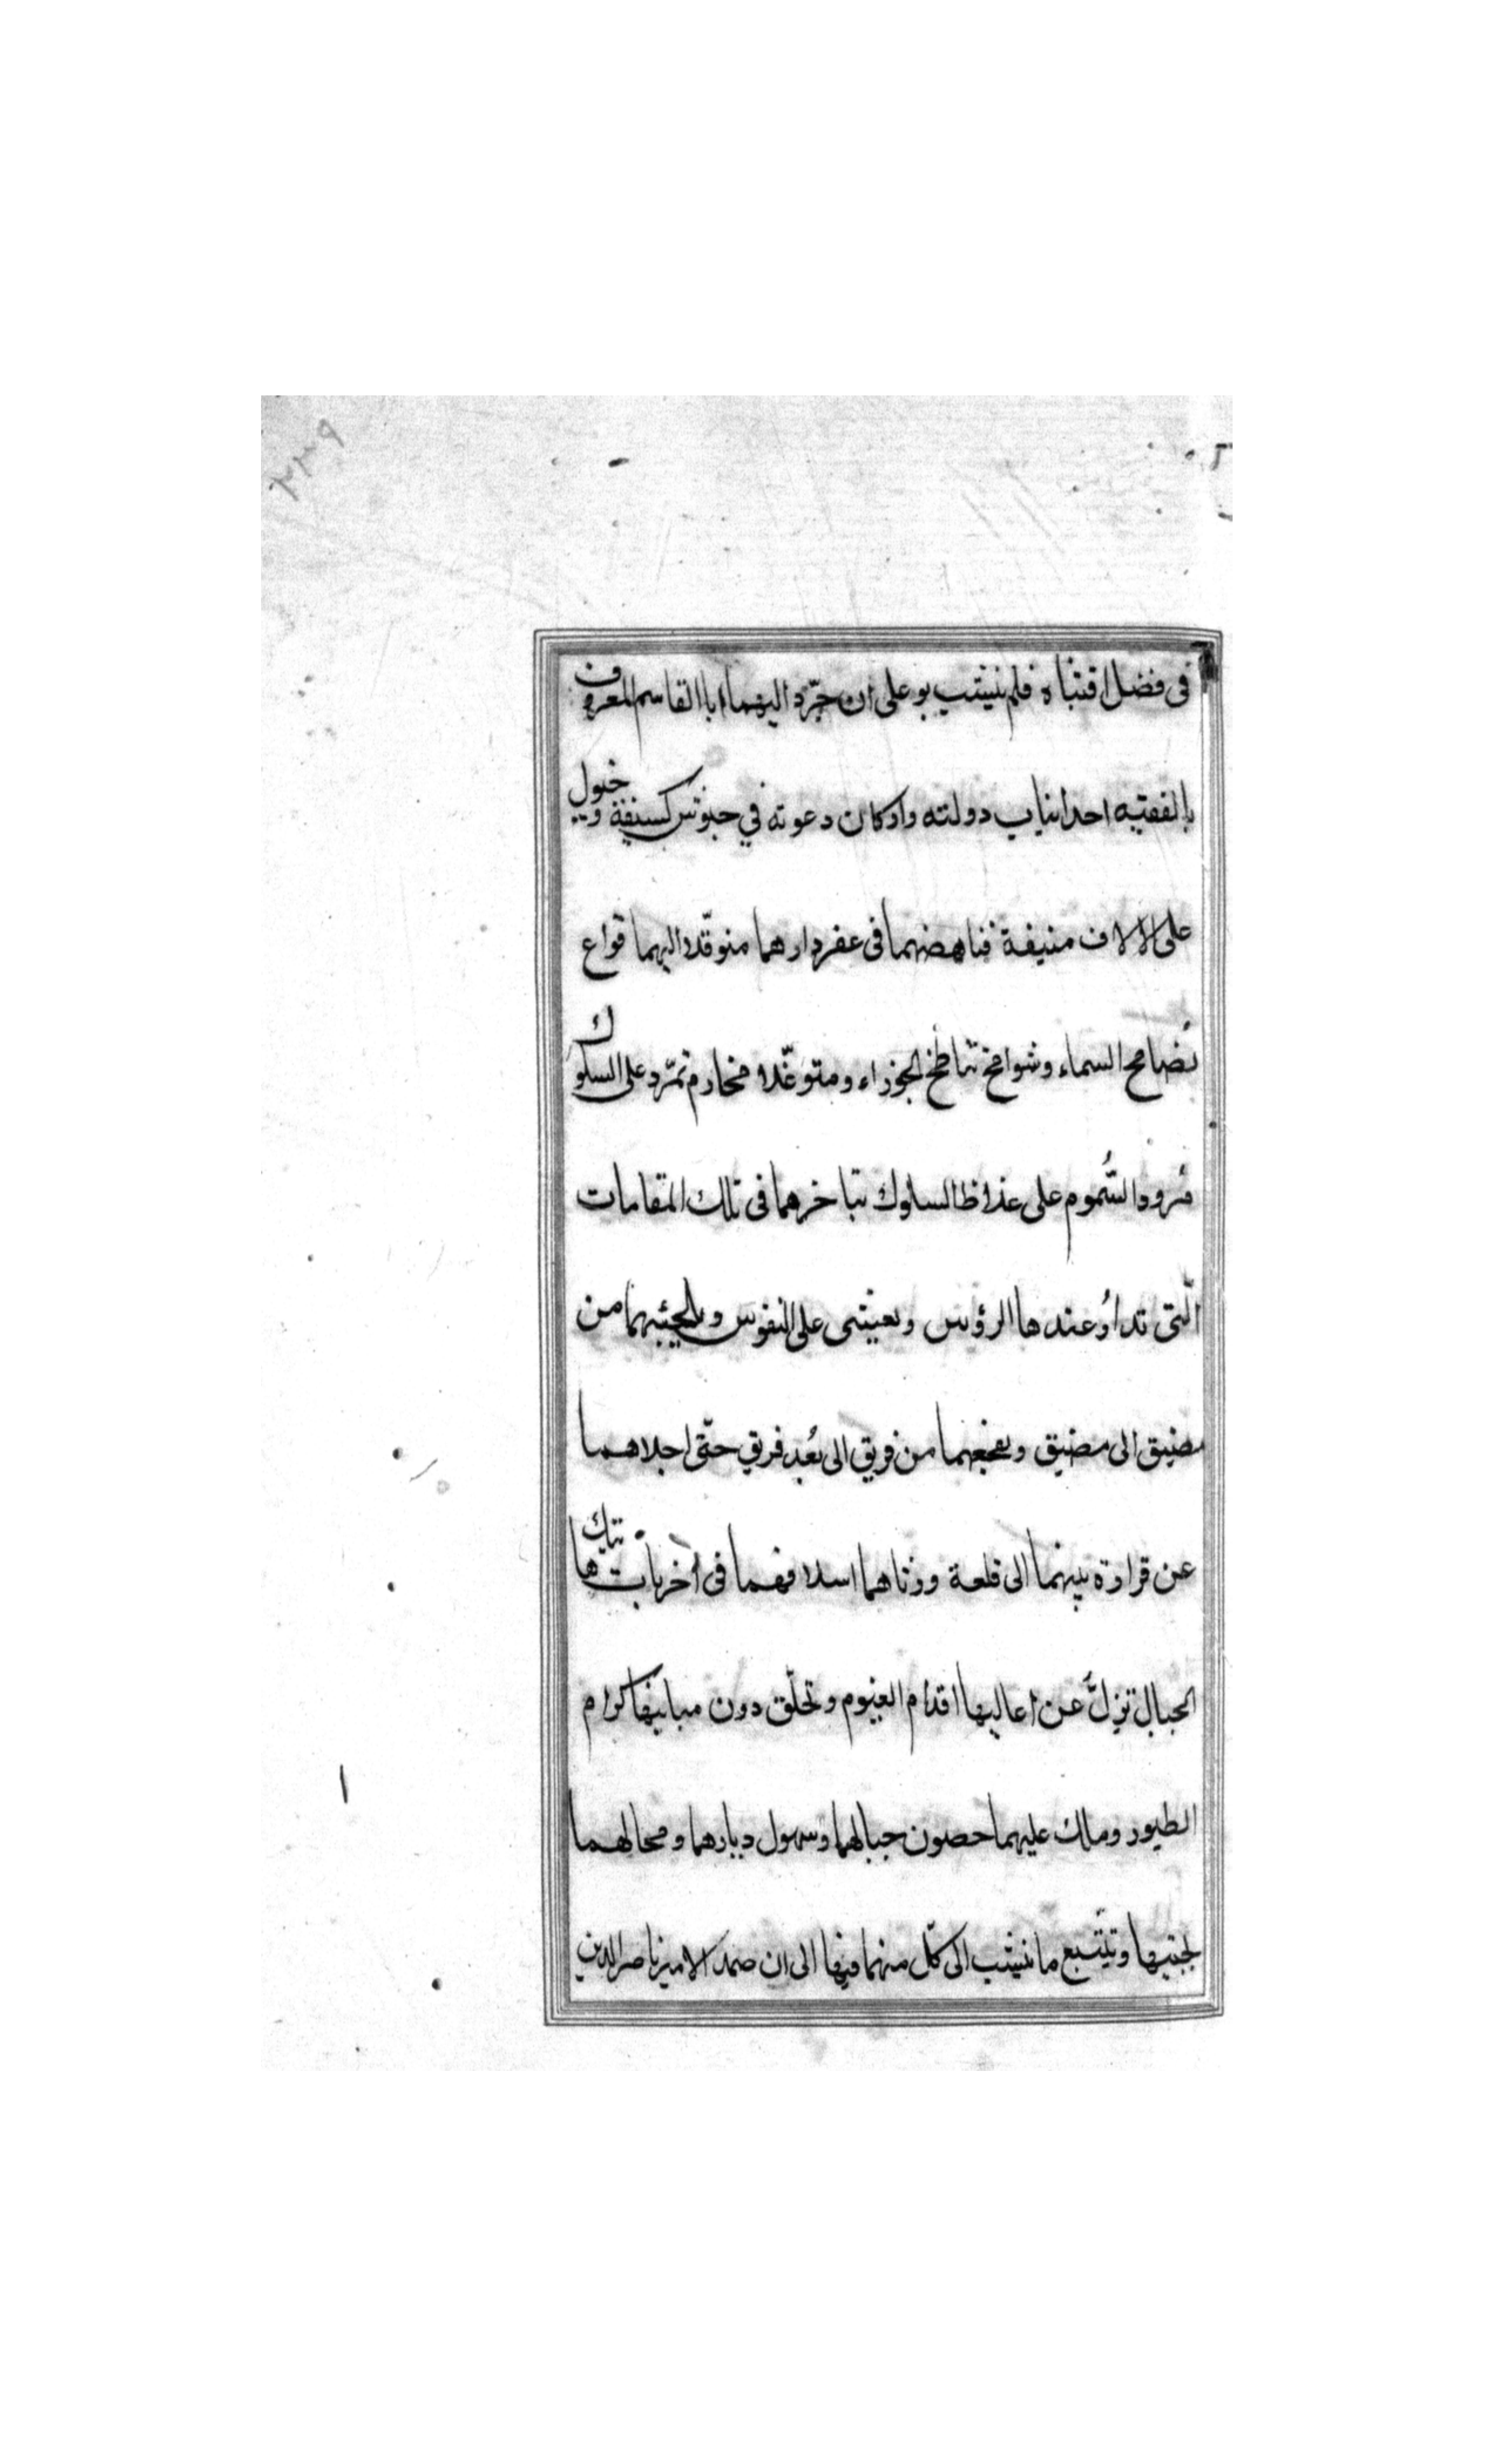 فى فضل اقتباه فلم ينشب بو على ان جرّد اليهما ابا القاسم المعروف
بالفقيه احد انياب دولته واركان دعوته في جيوش كسنفة وخيول
على الالاف منيفة فناهضهما فى عقر دارهما متوقلا اليهما قواع
تُصامح السماء وشوامخ تناطح الجوزاء ومتوغّلا مخارم تمرّد على السلوك
مرود السُّموم على السلوك تباخرهما فى تلك المقامات
الّتى تدا وُعندها الرؤس ويعيشى على النفوس ويلجئهما من
مضيق الى مضيق ويفجعهما من فريق الى بُعد فريق حتّى اجلاهما
عن قرارة بيتهما الى قلعة ورثاهما اسلافهما فى أخريات تيك ها
الجبال تزلّ عن اعاليها اقدام الغيوم وتحلّق دون مبانيها كرام
الطيور وملك عليهما حصون جبالهما وسهول ديارهما ومحالهما
لجنيها وتيتّبع ما ينسب الى كلّ منهما فيها الى ان صمد الامير ناصر الدين
ا